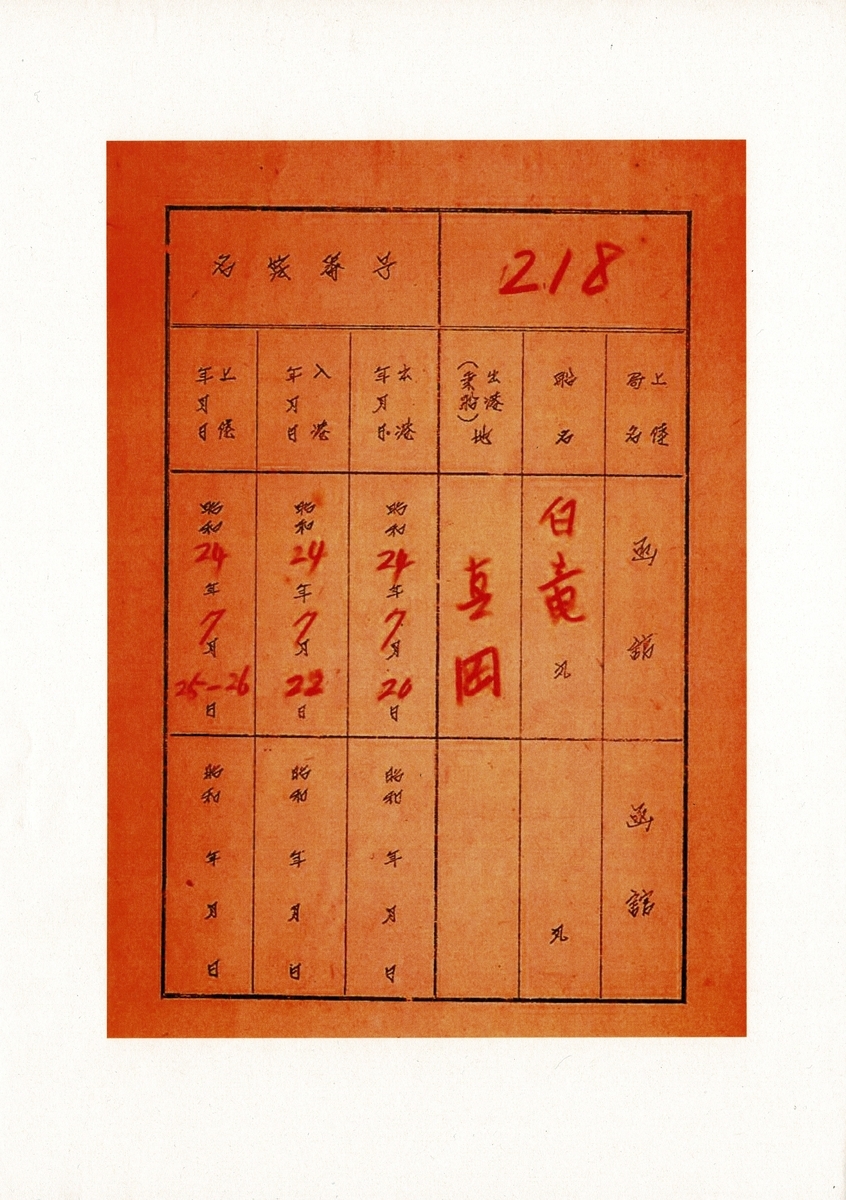 名簿番号
218
上陸
局名
船名
出港
(乗船)
地
出港
年月日
入港
年月日
上陸
年月日
函館
白竜丸
真岡
昭和24年7月20日
昭和24年7月22日
昭和24年7月25-26日
函館
丸
昭和 年 月 日
昭和 年 月 日
昭和 年 月 日